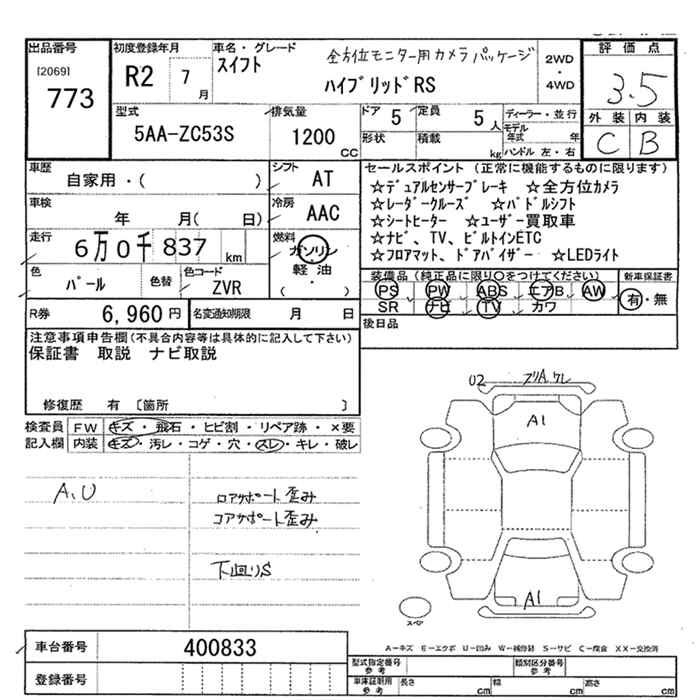 出品番号 [2069] 773
初度登録年月 R2 7月
車名・グレード スイフト 全方位モニター用カメラパッケージ
ハイブリッドRS
2WD・4WD
評価点 3.5
外装 内装
C B
型式 5AA-ZC53S
排気量 1200 CC
ドア 5 定員 5人
形状 積載 kg
ディーラー・並行
モデル年式 年
ハンドル 左・右
車歴 自家用・( )
シフト AT
車検 年 月( 日)
冷房 AAC
走行 6万0千837 km
燃料 ガソリン 軽油・( )
色 パール 色替
色コード ZVR
R券 6,960円 名変通知期限 月 日
セールスポイント (正常に機能するものに限ります)
☆デュアルセンサーブレーキ ☆全方位カメラ
☆レーダークルーズ ☆パドルシフト
☆シートヒーター ☆ユーザー買取車
☆ナビ、TV、ビルトインETC
☆フロアマット、ドアバイザー ☆LEDライト
装備品 (純正品に限り○をつけてください) 新車保証書
PS PW ABS エアB AW 有・無
SR ナビ TV カワ
後日品
注意事項申告欄(不具合内容等は具体的に記入して下さい)
保証書 取説 ナビ取説
修復歴 有 〔箇所 〕
検査員 FW キズ・飛石・ヒビ割・リペア跡・×要
記入欄 内装 キズ・汚レ・コゲ・穴・スレ・キレ・破レ
A、U
ロアサポート歪み
コアサポート歪み
下回りS
02
A1
A1
スペア
A－キズ E－エクボ U－凹み W－補修跡 S－サビ C－腐食 XX－交換済
車台番号 400833
登録番号
型式指定番号 参考 類別区分番号 参考
車庫証明用 参考 長さ cm 幅 cm 高さ cm